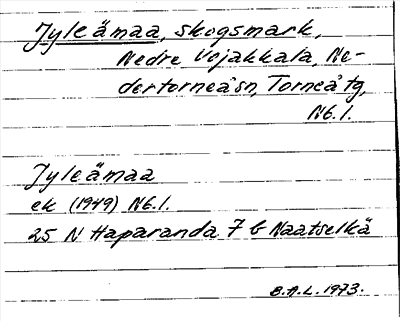 Jyleämaa, skogsmark,
Nedre Vojakkala, Ne-
dertorneåsn, Torneå tg,
Nb. l.
Jyleämaa
ek (1949) Nb. l.
25 N Haparanda 7 b Naatselkä
B.A.L. 1973.